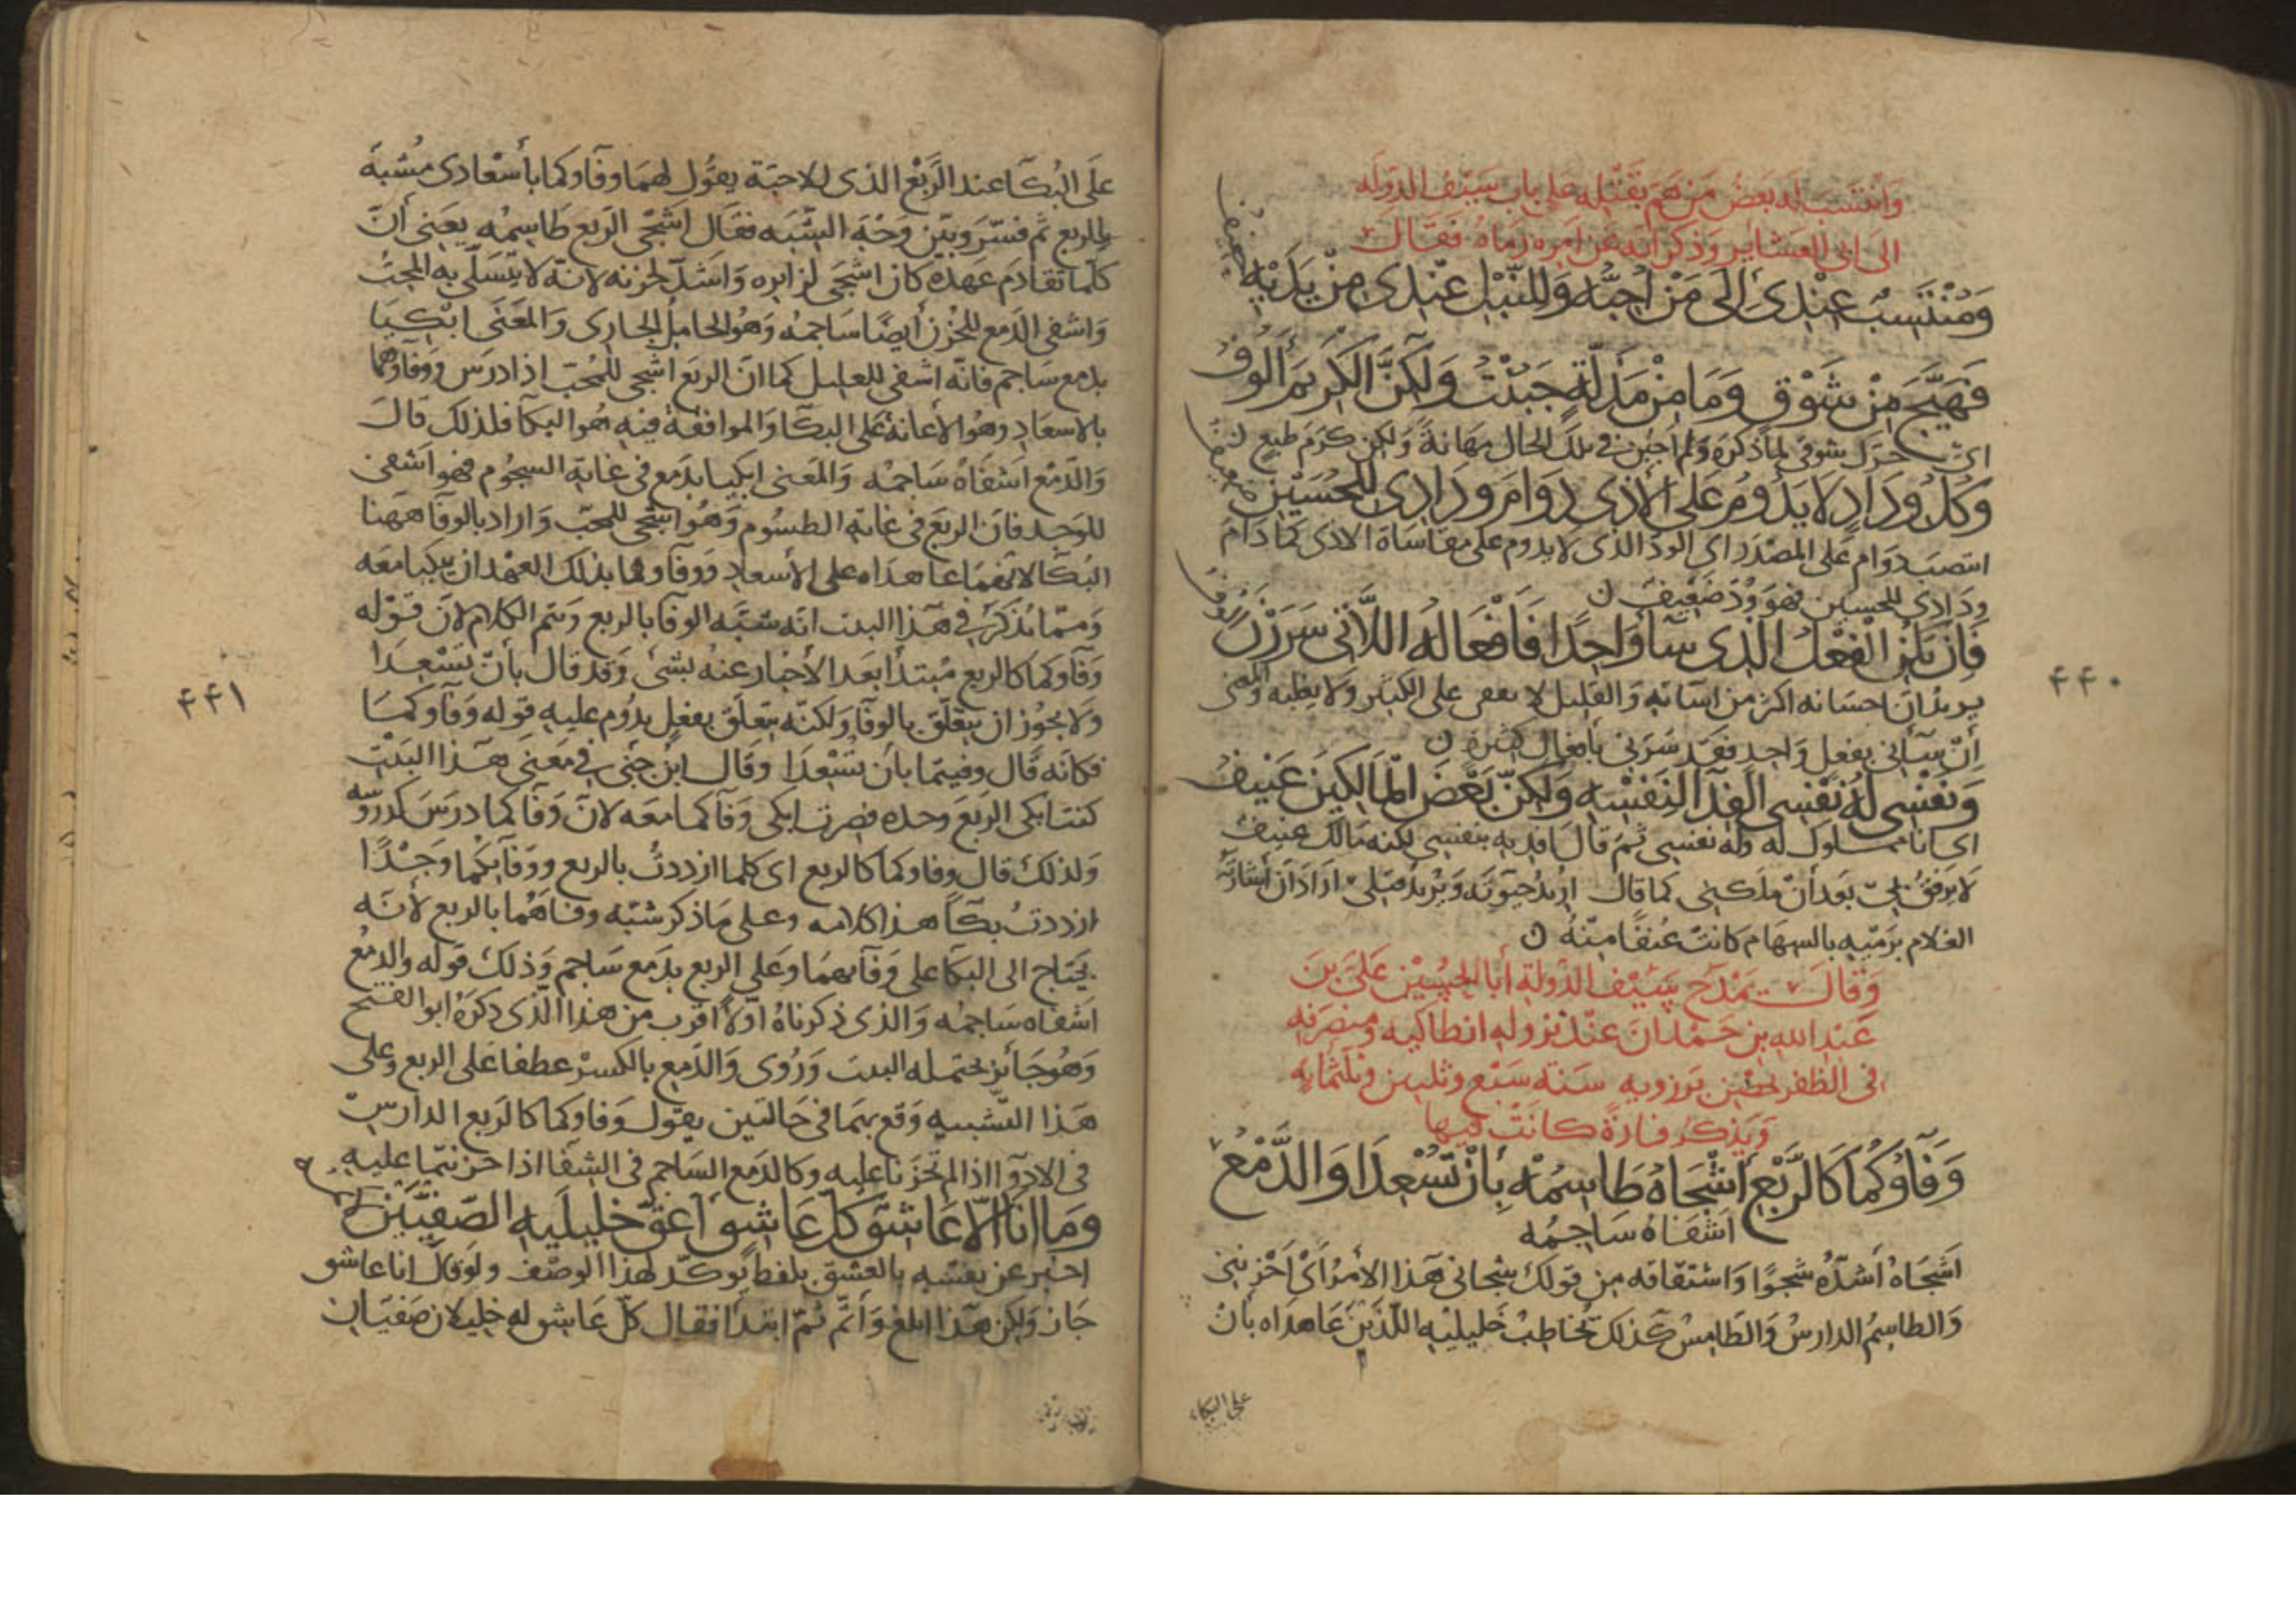 وَانْتَسَبَ لَه بَعضُ مَن هَمَّ بِقَتْلِهِ عَلى باب سَيْف الدَّولَه
الى ابى العَشاير وَذكر انّه عن امره رَمَاهُ فَقَال
وَمُنْتَسِبٌ عِنْدِى اِلَى مَنْ اُحِبُّه وَلِلنَّبْل عِنْدِى مِنْ يَدَيْهِ
حفيف
فَهَيَّجَ مِنْ شَوْقى وَمَا مِنْ مَذَلَّةٍ جَبُنْتُ وَلَكِنَّ الكَرِيمَ اَلُوفُ
اى حرّك شوقى لما ذكره ولم اجبن فى تلك الحال مهانةً ولكن كرم طبع
وَكُلُّ وِدَادٍ لَا يَدُومُ عَلَى الْأَذَى دَوَامَ وِدَادِى لِلْحُسَيْنِ
ضعيف
انتصب دوام على المصدر اى الودّ الذى لا يدوم على مقاساة الاذى كما دام
ودادى للحسين فهو وُدّ ضعيف
فَاِنْ يَكُنِ الْفِعْلُ الَّذِى سَآءَ وَاحِدًا فَاَفْعَالُهُ اللَّائى سَرَرْنَ
اُلُوفُ
يريد ان احسانه اكثر من اساته والقليل لا على الكثير ولا والمعنى
اِنْ سآنى بفعل واحد فقد سَرَّنى بافعال كثيره
وَنَفْسِى لَهُ نَفْسِى الفِدَآءُ لِنَفْسِهِ وَلَكِنَّ بَعْضَ الْمَالِكِينَ عَنِيفُ
اى انا مملوك له وله نفسى ثم قال افديه بنفسى لكنه مالك عنيف
لا يرفق بى بعد ان ملكنى كما قال اريد حيوته ويريد قتلى اراد ان اشارة
الغلام برميه بالسهام كانت عنفًا منهُ
وَقالَ يَمْدَح سَيْف الدّولة أبا الحسين عَلىَّ بنَ
عَبْد الله بن حَمْدانَ عند نزوله انطاكيه ومنصرفه
فى الظفر بحصن بَرزويه سَنة سَبْع وثلثين وثلثمايه
وَيَذكر فازةً كانت فيها
وَفَآؤُكُمَا كَالرَّبْعِ أَشْجَاهُ طَاسِمُهْ بِأَنْ تُسْعِدَا وَالدَّمْعُ
اَشْفَاهُ سَاجِمُه
اَشْجَاهُ أشَدُّهُ شَجوًا وَاشتقاقه من قولك شجانى هذا الأمر اى احزننى
وَالطاسم الدارسُ وَالطامس كذلك يخاطب خليليه اللَّذَيْن عَاهداه بأن
على البكاء
٤٤٠
على البُكآ عند الرَّبْع الذى للاحبّة يقول لهما وفآؤكما باسعادى مشبه
بالربع ثم فسّر وبيّن وَجْه الشَّبَه فقال اشجى الربع طاسمه يعنى أنّ
كلّما تقادم عهده كان اشجى لزايره وَاشدّ لحزنه لانّه لا يتسلّى به المحبّ
وَاشفى الدمع للحزن أيضًا ساجمه وَهُو الحامل الجارى وَالمعنى ابكيا
بدمع ساجم فانه اشفى للعليل كما ان الربع اشجى للمحب اذا درس ووفاؤهما
بالاسعاد وهو الاعانة على البكآ وَالموافقة فيه هُو البكآ فلذلك قال
وَالدّمع اَشْفاهُ سَاجمُه وَالمعنى ابكيا بدمع فى غاية السجوم فهو اشفى
للوجد فان الربع فى غاية الطسوم وَهُو اشجى للمحبّ وَاراد بالوفآ هَهُنا
البُكآ لانّهما عاهداه على الاسعاد ووفآؤهما بذلك العهد ان يبكيا معه
وَممّا يُذكر فى هذا البيت انّه شبّه الوفآ بالربع وَتمّ الكلام لان قوله
وَفآؤكما كالربع مبتدأ بَعد الاخبار عنهُ بشئ وَقد قال بأنْ تسْعدَا
وَلا يجوز ان يتعلّق بالوفآ وَلكنّه يتعلّق بفعل يدُوم عليه قوله وَفآؤكمَا
فكانه قال وفيتما بأن تسْعدَا وَقال ابن جنى فى معنى هذا البَيْت
كنت ابكى الربع وحده فصرت ابكى وَفآكما معه لان وَفآكما درس كدروسه
وَلذلك قال وفاوكما كالربع اى كلما ازددتُ بالربع ووفآيكما وَجْدًا
ازددت بكآً هذا كلامه وعلى ما ذكر شبّه وفآهُما بالربع لأنه
يحتاج الى البكآ على وَفآيهما وعلى الربع بدَمع سَاجم وَذلك قوله والدمع
اشفاه سَاجمُه وَالذى ذكرناهُ اولاً اقرب من هذا الّذى ذكرهُ ابو الفتح
وَهُو جَائز يحتمله البيت وَرُوى وَالدمعِ بالكسر عطفا على الربع وعلى
هَذا التشبيه وَقع بهما فى حَالتين يقول وَفاوكما كالربع الدارس
فى الادوآ اذا لم تحزنا عليه وكالدمع السَاجم فى الشفآ اذا حزنتما عليه
وَمَا انَا اِلَّا عَاشِقٌ كُلُّ عَاشِقٍ اَعَقُّ خَلِيلَيْهِ الصَّفِيَّيْنِ لَائِمُه
اخبر عن نفسه بالعشق بلفظ يوكّد لهذا الوصف ولو قال انا عاشق
جَاز وَلكن هذا ابلغ وَأتمّ ثمّ ابتدأ فقال كلّ عَاشق له خليلان صَفيَان
٤٤١